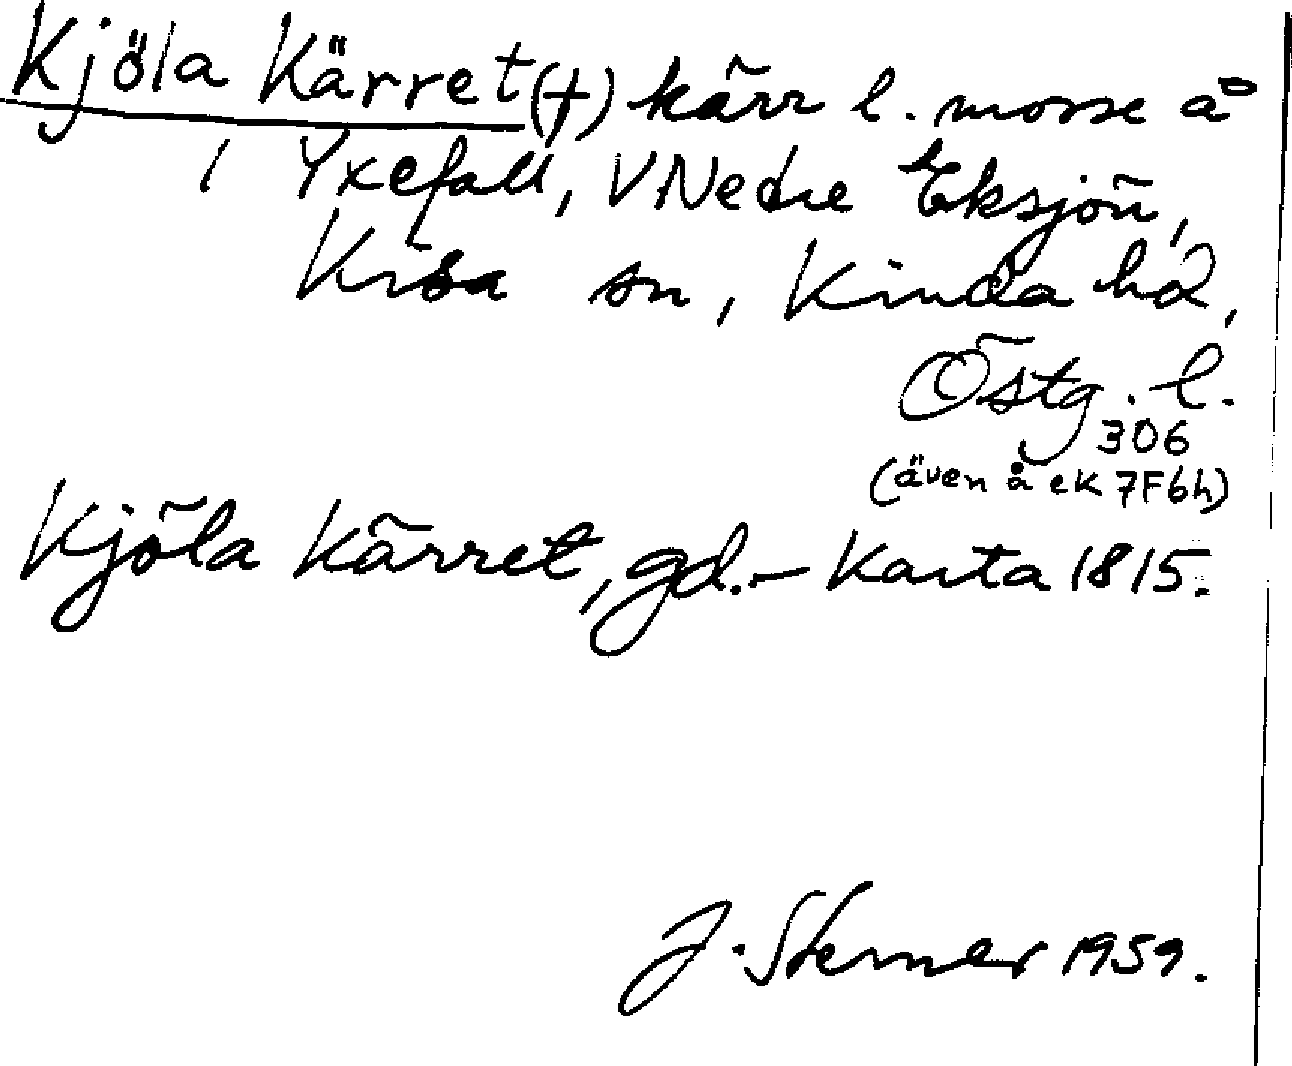 Kjöla Kärret (†) kärr l. mosse å
Yxefall, V Nedre Eksjön,
Kisa sn, Kinda hd,
Östg. l.
306
(även å ek 7F6h)
Kjöla Kärret, gd. – Karta 1815.
J. Sterner 1959.